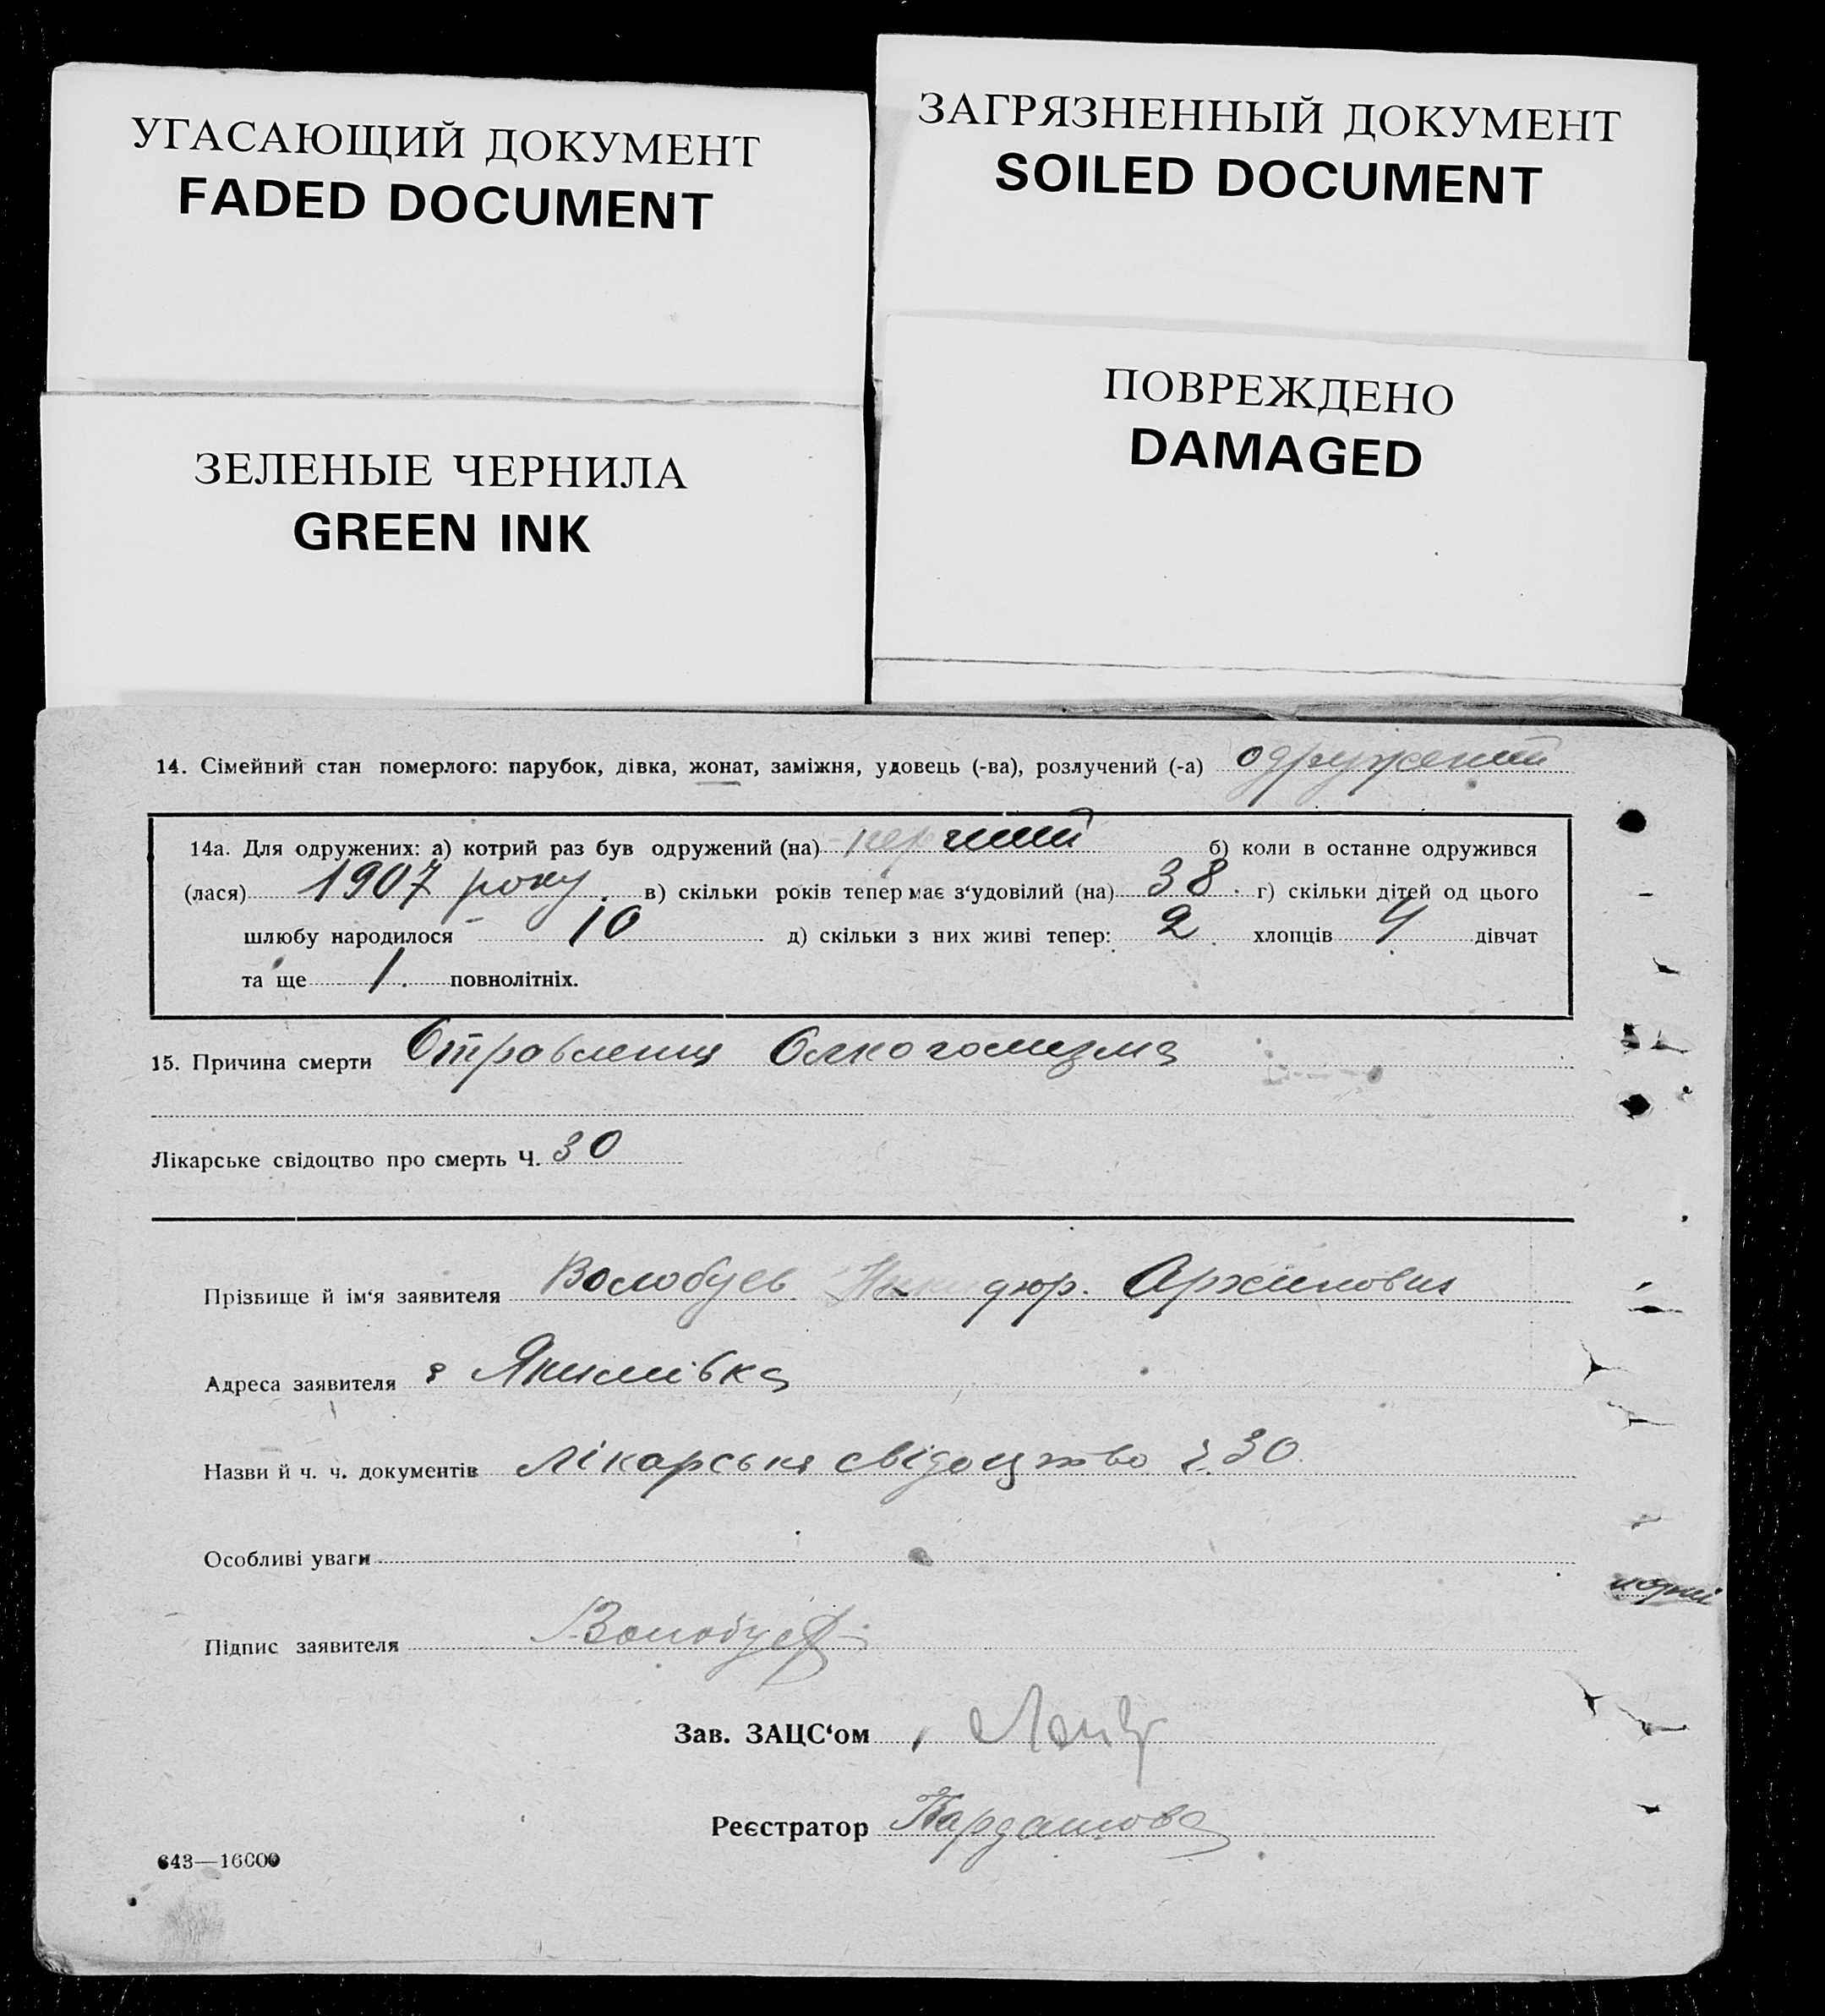 УГАСАЮЩИЙ ДОКУМЕНТ
FADED DOCUMENT
ЗАГРЯЗНЕННЫЙ ДОКУМЕНТ
SOILED DOCUMENT
ЗЕЛЕНЫЕ ЧЕРНИЛА
GREEN INK
ПОВРЕЖДЕНО
DAMAGED
14. Сімейний стан померлого: парубок, дівка, жонат, заміжня, удовець (-ва), розлучений (-а) одружений
14а. Для одружених: а) котрий раз був одружений (на) перший б) коли в останне одружився
(лася) 1907 року. в) скільки років тепер має з'удовілий (на) 38. г) скільки дітей од цього
шлюбу народилося 10 д) скільки з них живі тепер: 2 хлопців 4 дівчат
та ще 1. повнолітніх.
15. Причина смерти Отровления Олкоголизма
Лікарське свідоцтво про смерть Ч. 30
Прізвище й ім'я заявителя Волобуев Архипович
Адреса заявителя Якимівка
Назви й ч. ч. документів Лікарська свідоцтво 30
Особливі уваги
Підпис заявителя Волобуев
Зав. ЗАЦС'ом
Реєстратор Кардашова
643—16000